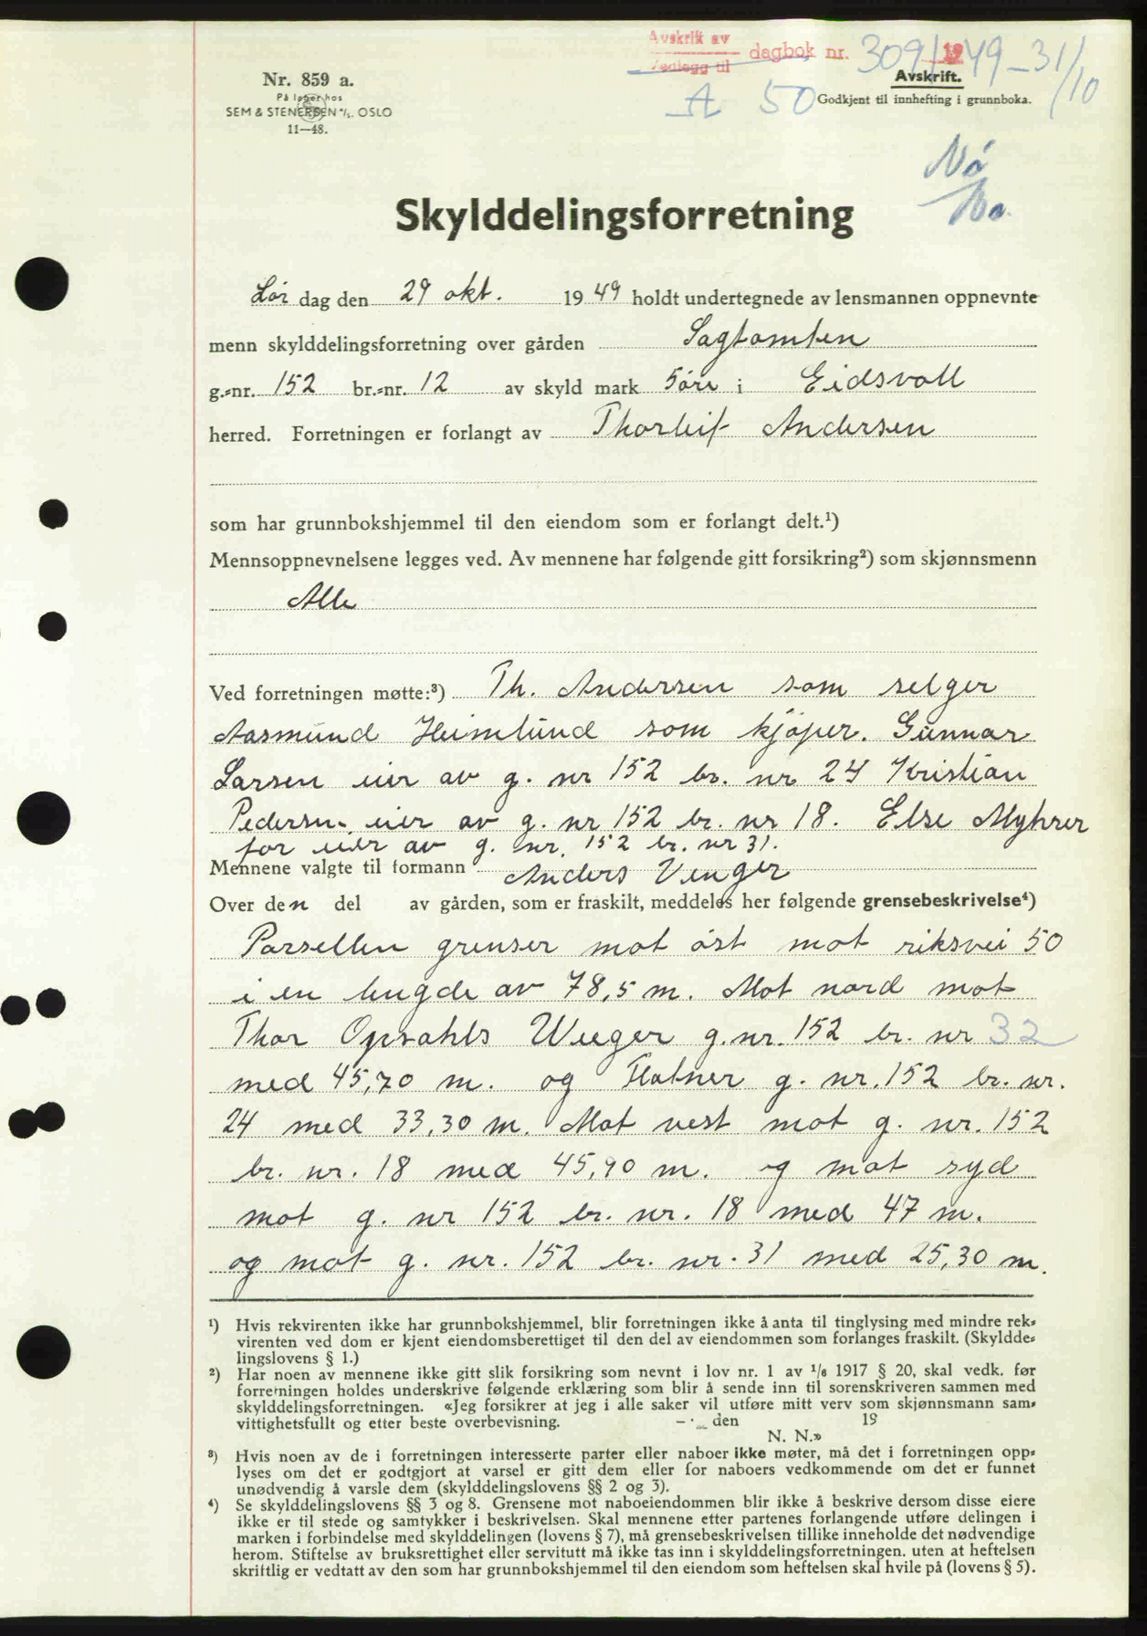 Avskrift av
Vedlegg til dagbok nr. 3091 1949 - 31/10
A 50
Nr. 859 a.
På lager hos
SEM & STENERSEN A/S. OSLO
11—48.
Avskrift.
Godkjent til innhefting i grunnboka.
Nø
Skylddelingsforretning
Lør dag den 29 okt. 1949 holdt undertegnede av lensmannen oppnevnte
menn skylddelingsforretning over gården Sagtomten
g.-nr. 152 br.-nr. 12 av skyld mark 5 øre i Eidsvoll
herred. Forretningen er forlangt av Thorleif Andersen
som har grunnbokshjemmel til den eiendom som er forlangt delt.¹)
Mennsoppnevnelsene legges ved. Av mennene har følgende gitt forsikring²) som skjønnsmenn
Alle
Ved forretningen møtte:³) Th. Andersen som selger
Aasmund Heimlund som kjøper. Gunnar
Larsen eier av g. nr 152 br. nr 24 Kristian
Pedersen eier av g. nr 152 br. nr 18. Else Myhrer
for eier av g. nr. 152 br. nr 31.
Mennene valgte til formann Anders Venger
Over den del av gården, som er fraskilt, meddeles her følgende grensebeskrivelse⁴)
Parsellen grenser mot øst mot riksvei 50
i en lengde av 78,5 m. Mot nord mot
Thor Opsahls Weeger g.nr. 152 br. nr 32
med 45,70 m. og Flatner g. nr. 152 br. nr.
24 med 33,30 m. Mot vest mot g. nr. 152
br. nr. 18 med 45,90 m. og mot syd
mot g. nr 152 br. nr. 18 med 47 m.
og mot g. nr. 152 br. nr. 31 med 25,30 m.
¹) Hvis rekvirenten ikke har grunnbokshjemmel, blir forretningen ikke å anta til tinglysing med mindre rek-
virenten ved dom er kjent eiendomsberettiget til den del av eiendommen som forlanges fraskilt. (Skyldde-
lingslovens § 1.)
²) Har noen av mennene ikke gitt slik forsikring som nevnt i lov nr. 1 av 1/6 1917 § 20, skal vedk. før
forretningen holdes underskrive følgende erklæring som blir å sende inn til sorenskriveren sammen med
skylddelingsforretningen. «Jeg forsikrer at jeg i alle saker vil utføre mitt verv som skjønnsmann sam-
vittighetsfullt og etter beste overbevisning. — den 19
N. N.»
³) Hvis noen av de i forretningen interesserte parter eller naboer ikke møter, må det i forretningen opp-
lyses om det er godtgjort at varsel er gitt dem eller for naboers vedkommende om det er funnet
unødvendig å varsle dem (skylddelingslovens §§ 2 og 3).
⁴) Se skylddelingslovens §§ 3 og 8. Grensene mot naboeiendommen blir ikke å beskrive dersom disse eiere
ikke er til stede og samtykker i beskrivelsen. Skal mennene etter partenes forlangende utføre delingen i
marken i forbindelse med skylddelingen (lovens § 7), må grensebeskrivelsen tillike inneholde det nødvendige
herom. Stiftelse av bruksrettighet eller servitutt må ikke tas inn i skylddelingsforretningen, uten at heftelsen
skriftlig er vedtatt av den som har grunnbokshjemmel til den eiendom som heftelsen skal hvile på (lovens § 5).